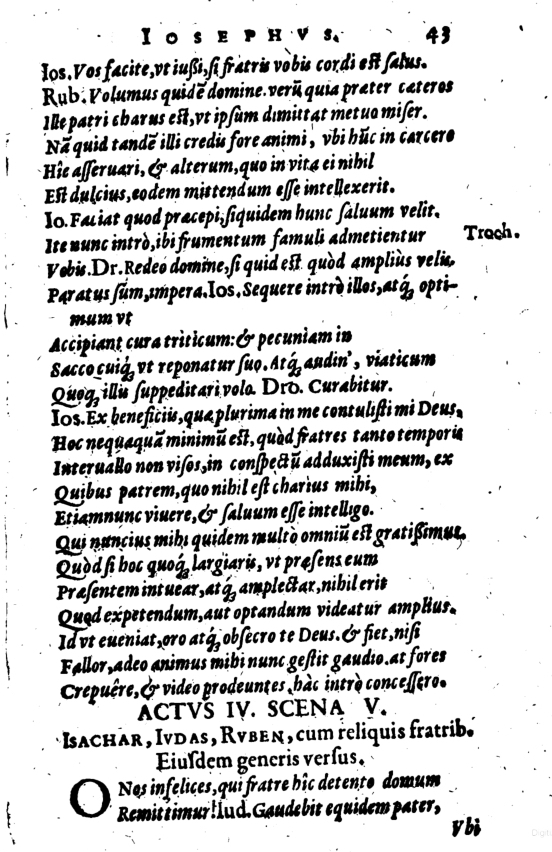 IOSEPHVS. 43
Ios. Vos facite, vt iußi, si fratris vobis cordi est salus.
Rub. Volumus quidē domine. verū quia præter cæteros
Ille patri charus est, vt ipsum dimittat metuo miser.
Nā quid tandē illi credis fore animi, vbi hūc in carcere
Hîc asseruari, & alterum, quo in vita ei nihil
Est dulcius, eodem mittendum esse intellexerit.
Io. Faciat quod præcepi, siquidem hunc saluum velit.
Ite nunc intrò, ibi frumentum famuli admetientur Troch.
Vobis. Dr. Redeo domine, si quid est quòd amplius velis,
Paratus sum, impera. Ios. Sequere intrò illos, atq́; opti-
mum vt
Accipiant cura triticum: & pecuniam in
Sacco cuiq́; vt reponatur suo. Atq́; audin', viaticum
Quoq́; illis suppeditari volo. Dro. Curabitur.
Ios. Ex beneficiis, quæ plurima in me contulisti mi Deus,
Hoc nequaquā minimū est, quòd fratres tanto temporis
Interuallo non visos, in conspectū adduxisti meum, ex
Quibus patrem, quo nihil est charius mihi,
Etiamnunc viuere, & saluum esse intelligo.
Qui nuncius mihi quidem multò omniū est gratißimus.
Quòd si hoc quoq́; largiaris, vt præsens eum
Præsentem intuear, atq́; amplectar, nihil erit
Quod expetendum, aut optandum videatur amplius.
Id vt eueniat, oro atq́; obsecro te Deus. & fiet, nisi
Fallor, adeo animus mihi nunc gestit gaudio. at fores
Crepuêre, & video prodeuntes, hàc intrò concessero.
ACTVS IV. SCENA V.
ISACHAR, IVDAS, RVBEN, cum reliquis fratrib.
Eiusdem generis versus.
O Nos infelices, qui fratre hîc detento domum
Remittimur! Iud. Gaudebit equidem pater,
Vbi